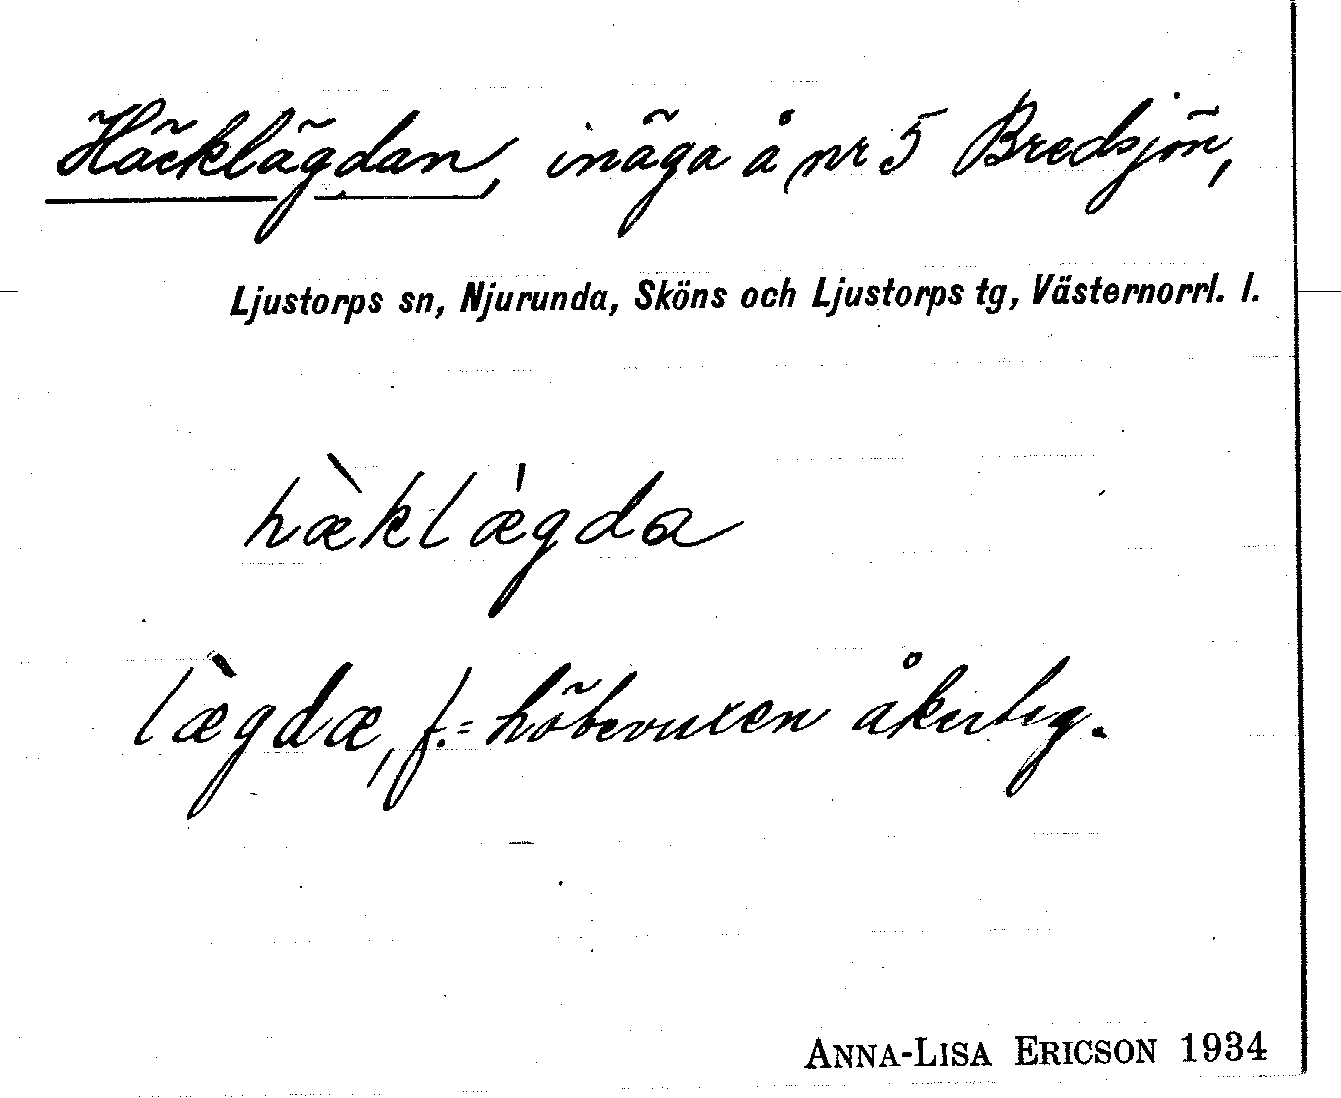 Häcklägdan, inäga å nr 5 Bredsjön,
Ljustorps sn, Njurunda, Sköns och Ljustorps tg, Västernorrl. l.
hæ̀klæ̀gda
læ̀gdæ, f. = höbevuxen åkerteg.
ANNA-LISA ERICSON 1934